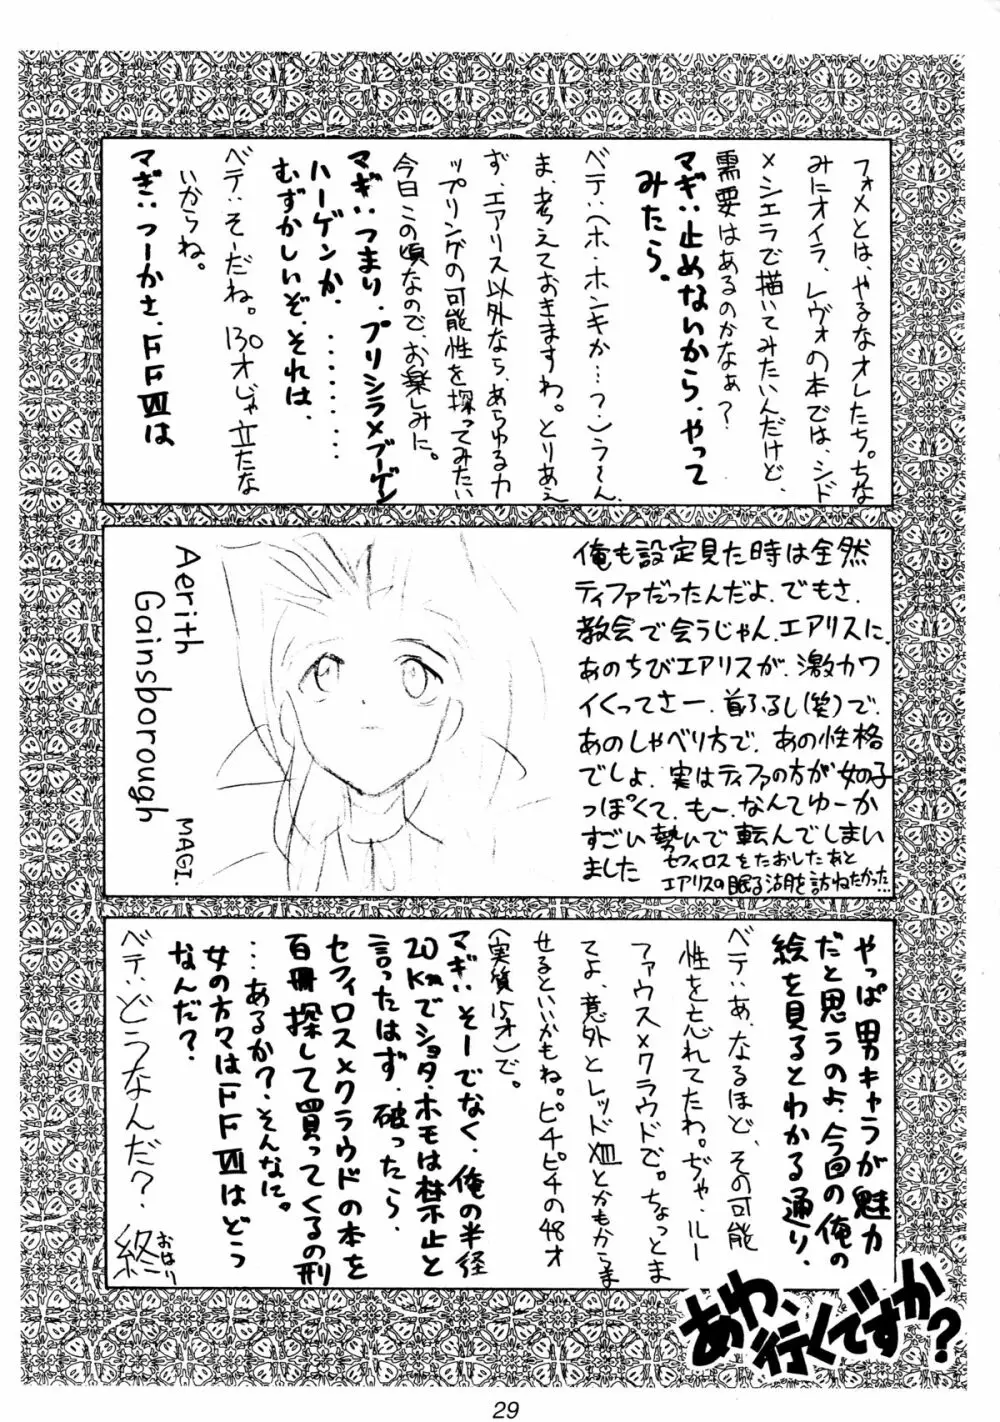 フォメとは、やるなオレたち。ちな
みにオイラ、レヴォの本では、シド
×シエラで描いてみたいんだけど、
需要はあるのかなぁ?
マギ:止めないから、やって
みたら。
ベテ:(ホ・ホンキか…?)う〜ん、
ま、考えておきますわ。とりあえ
ず、エアリス以外なら、あらゆるカ
ップリングの可能性を探ってみたい
今日この頃なので、お楽しみに。
マギ:つまり、プリシラ×ブーゲン
ハーゲンか………
むずかしいぞ、それは、
ベテ:そーだね。130才じゃ立たな
いからね。
マギ:つーかさ、FFⅦは
俺も設定見た時は全然
ティファだったんだよ、でもさ、
教会で会うじゃん、エアリスに、
あのちびエアリスが、激カワ
イくってさー、首ふるし(笑)で、
あのしゃべり方で、あの性格
でしょ、実はティファの方が女の子
っぽくて、もー、なんてゆーか
すごい勢いで転んでしまい
ました
セフィロスをたおしたあと
エアリスの眠る湖を訪ねたかった…
Aerith
Gainsborough
MAGI.
やっぱ男キャラが魅力
だと思うのよ、今回の俺の
絵を見るとわかる通り、
ベテ:あ、なるほど、その可能
性を忘れてたわ。ぢゃ、ルー
ファウス×クラウドで。ちなっとま
てよ、意外とレッドⅩⅢとかもからま
せるといいかもね。ピチピチの48才
(実質15才)で。
マギ:そーでなく、俺の半径
20Kmでショタ・ホモは禁止と
言ったはず、破ったら、
セフィロス×クラウドの本を
百冊探して買ってくるの刑
…あるか?、そんなに。
女の方々はFFⅦはどう
なんだ?
ベテ:どうなんだ?
終
おはり
あわ、行くですか?
29